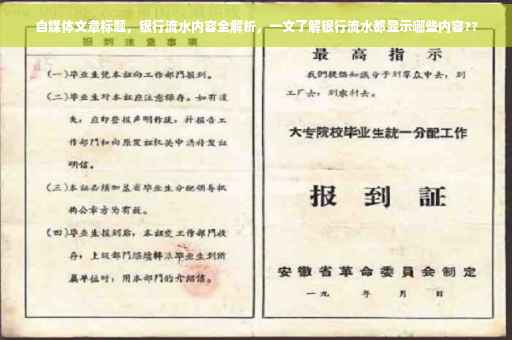 自媒体文章标题，银行流水内容全解析，一文了解银行流水都显示哪些内容??
报到注意事项
(一)毕业生凭本证向工作部门报到。
(二)毕业生对本证应注意保存。如有遗
失，应即登报声明作废，并报告工
作部门和向原发证机关申请补发证
明信。
(三)本证必须加盖省毕业生分配领导机
构公章方为有效。
(四)毕业生报到后，本证交工作部门收
存，上级部门继续转派毕业生到所
属单位时，用本部门的介绍信。
最高指示
我们提倡知识分子到群众中去，到
工厂去，到农村去。
大专院校毕业生统一分配工作
报到証
安徽省革命委員会制定
一九 年 月 日